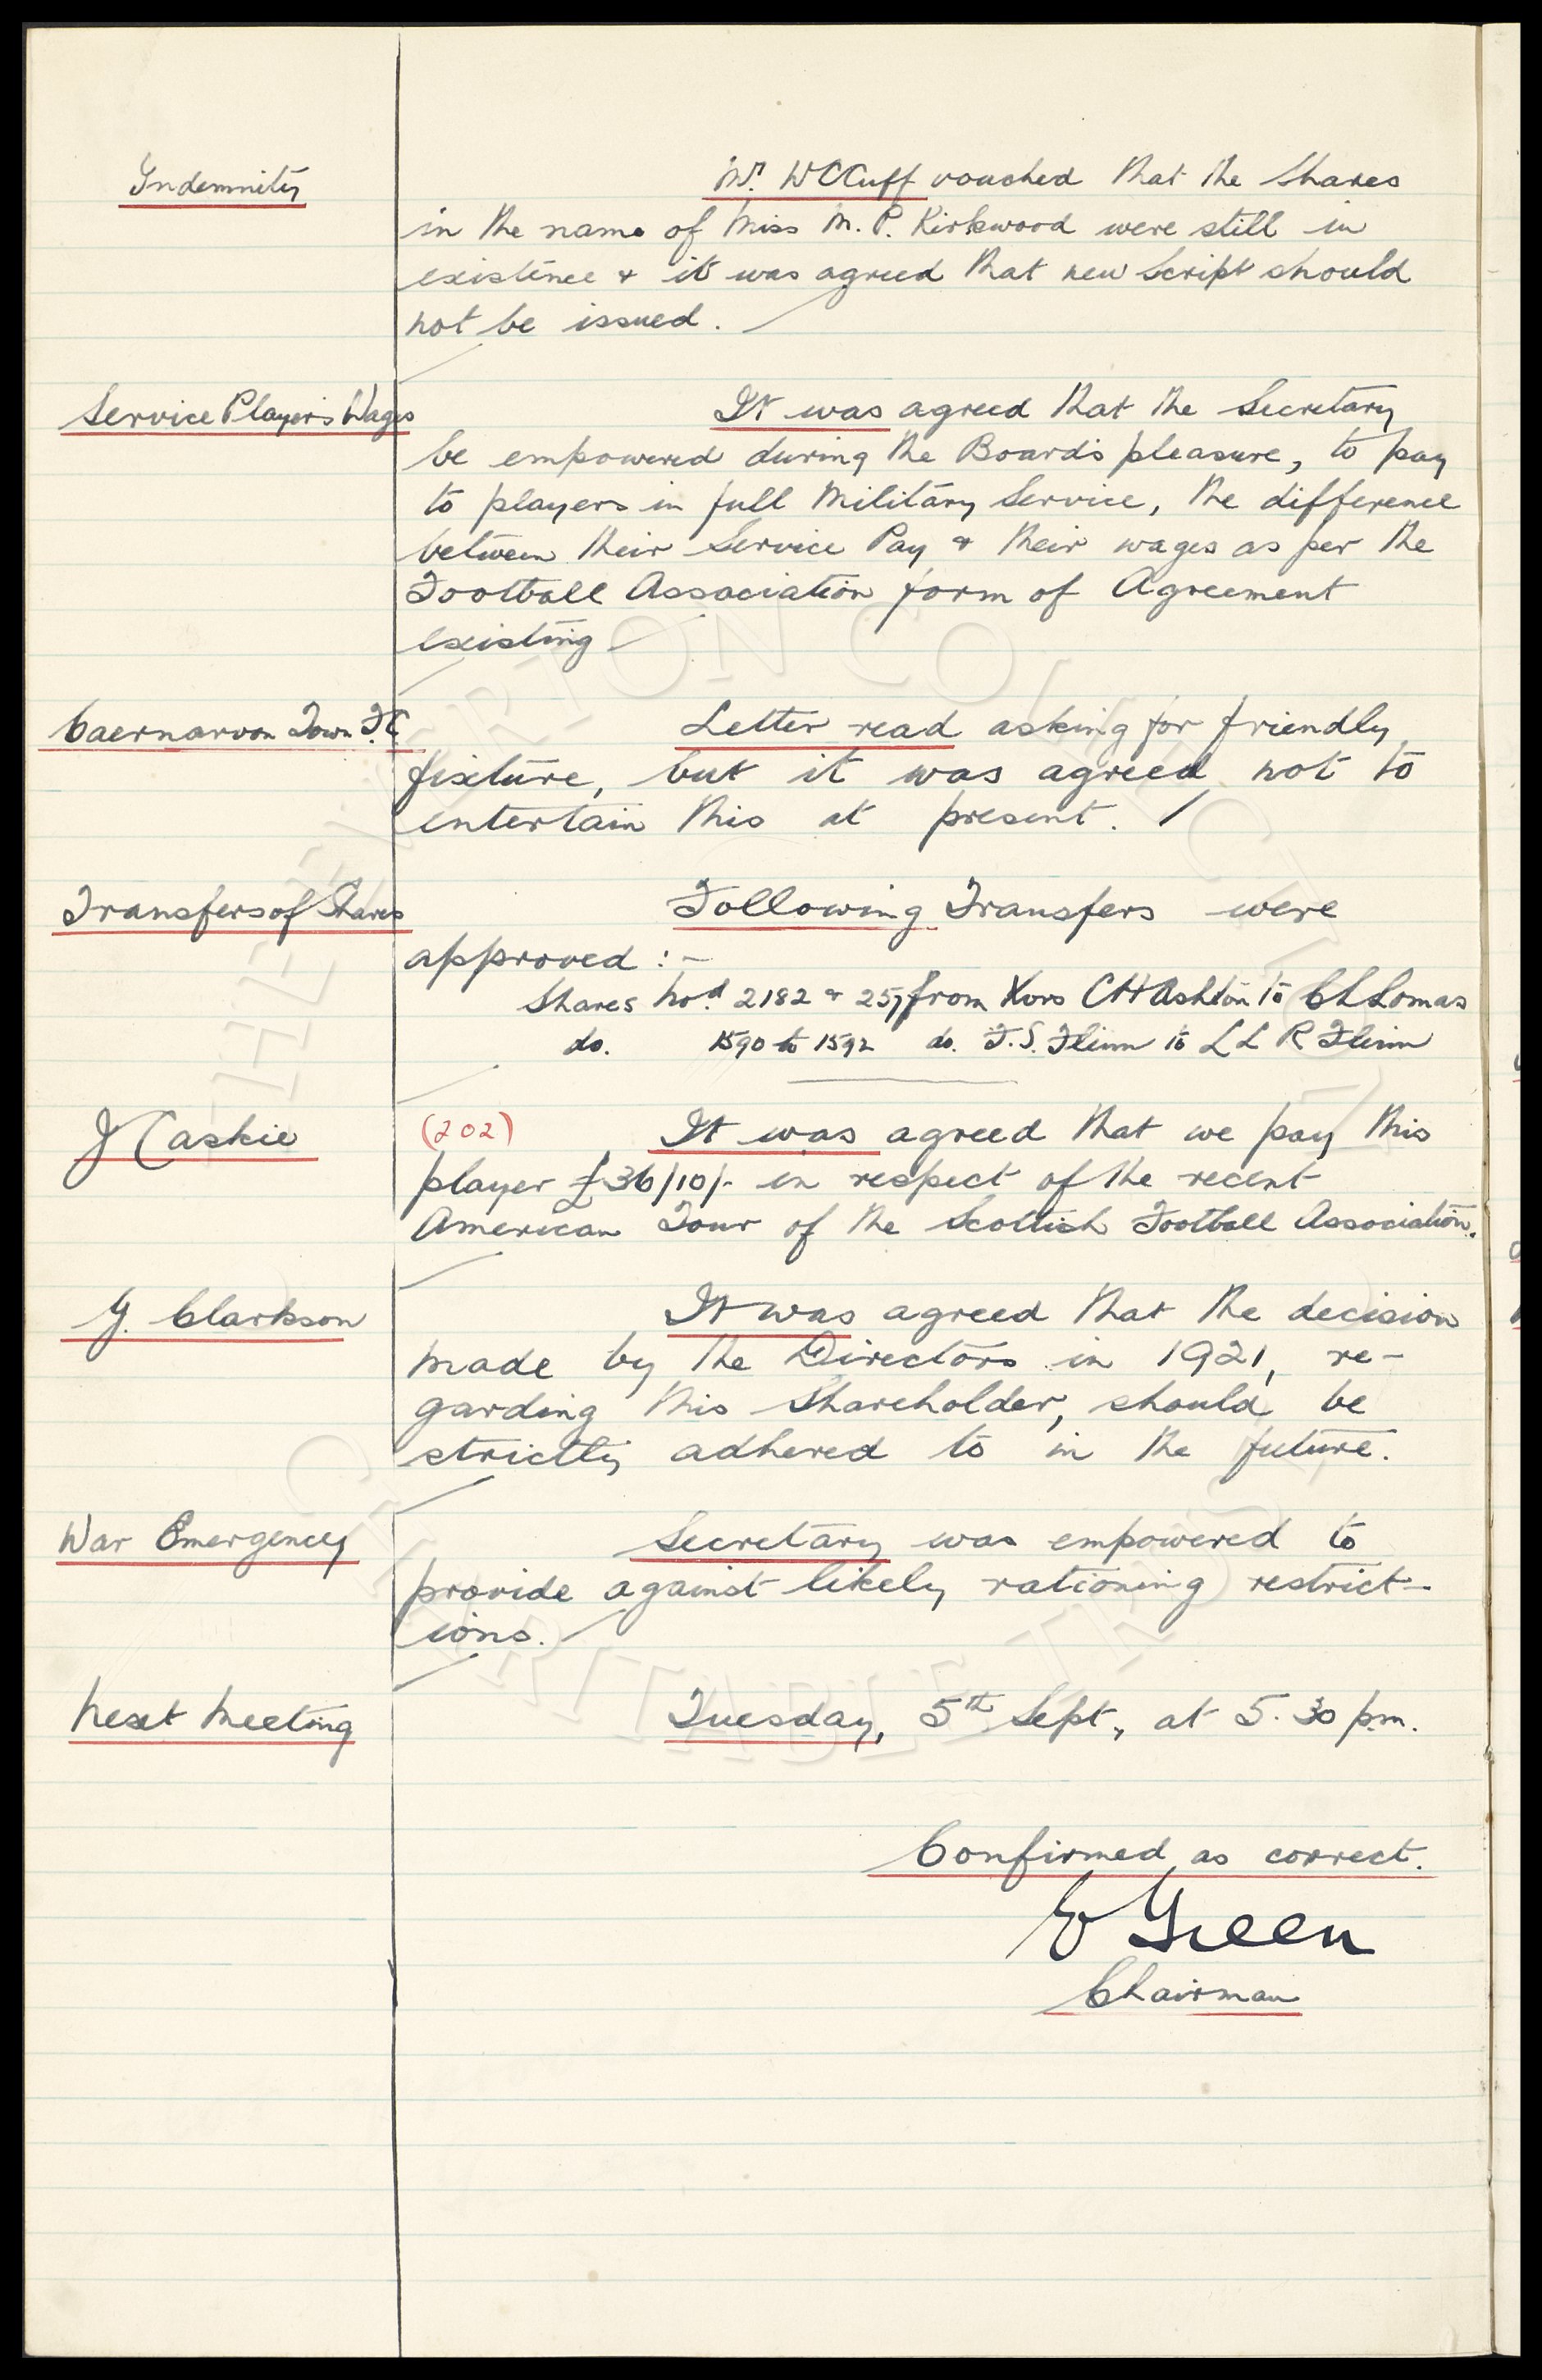 Indemnity
Mr. W C Cuff vouched that the Shares
in the name of Miss M. P. Kirkwood were still in
existence & it was agreed that new Script should
not be issued.
Service Player's Wages
It was agreed that the Secretary
be empowered during the Board's pleasure, to pay
to players in full Military Service, the difference
between their Service Pay & their wages as per the
Football Association form of Agreement
existing
Caernarvon Town F.C
Letter read asking for friendly
fixture, but it was agreed not to
entertain this at present.
Transfers of Shares
Following Transfers were
approved :-
Shares Nod 2182 & 257 from Xors C H Ashton to C L Lomas
do. 1590 to 1592 do. F. S. Flinn to L L R Flinn
J Caskie
(202) It was agreed that we pay this
player £36/10/- in respect of the recent
American Tour of the Scottish Football Association.
G. Clarkson
It was agreed that the decision
made by the Directors in 1921, re-
garding this Shareholder, should be
strictly adhered to in the future.
War Emergency
Secretary was empowered to
provide against likely rationing restrict-
ions.
Next Meeting
Tuesday, 5th Sept, at 5.30 p.m.
Confirmed as correct.
E Green
Chairman
THE EVERTON COLLECTION
CHARITABLE TRUST